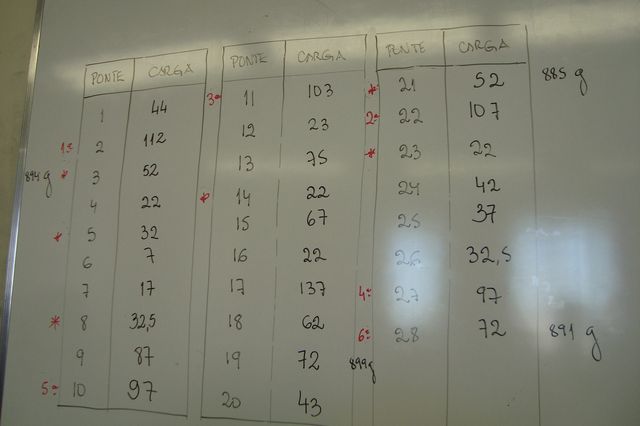 PONTE CARGA
1 44
1ª 2 112
894 g * 3 52
4 22
* 5 32
6 7
7 17
* 8 32,5
9 87
5ª 10 97
PONTE CARGA
3ª 11 103
12 23
13 75
* 14 22
15 67
16 22
17 137
18 62
19 72
20 43
PONTE CARGA
* 21 52 885 g
2ª 22 107
* 23 22
24 42
25 37
26 32,5
4ª 27 97
6ª 28 72 891 g
899g